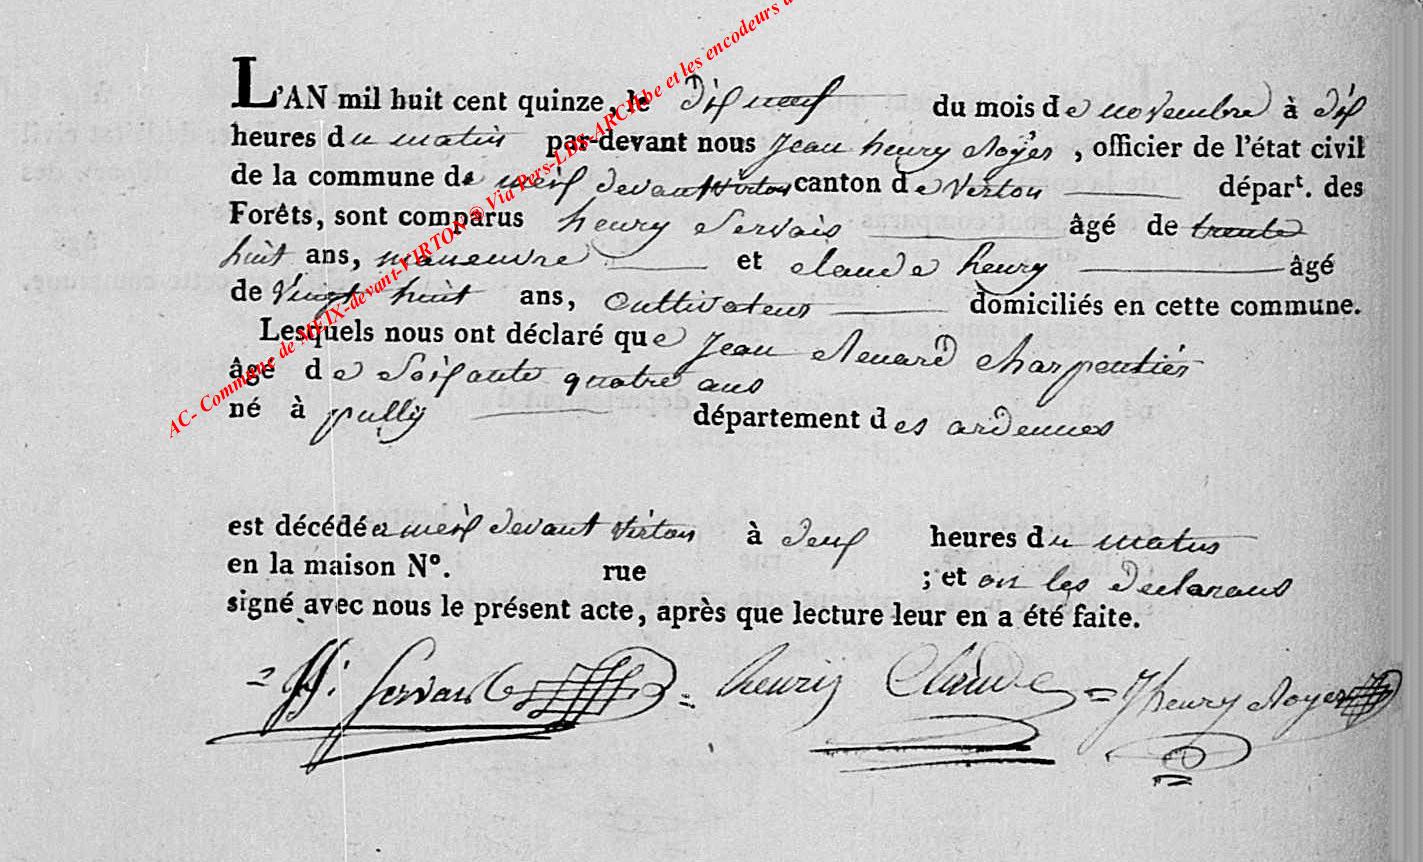 L'AN mil huit cent quinze, le dix neuf du mois de novembre à dix
heures du matin par-devant nous jean henry Royer, officier de l'état civil
de la commune de meix devant virton canton de virtonépart. des
Forêts, sont comparus henry Servais âgé de trente
huit ans, maneuvre et claude henry âgé
de vingt huit ans, Cultivateur domiciliés en cette commune.
Lesquels nous ont déclaré que jean Renard charpentier
âgé de Soixante quatre ans
né à pully département des ardennes
est décédé a meix devant virton à deux heures du matin
en la maison N°. rue ; et on les declarans
signé avec nous le présent acte, après que lecture leur en a été faite.
= H. Servais = henry Claude = J henry Royer
AC- Commune de MEIX-devant-VIRTON ® Via Pers-LUX-ARCH.be et les encodeurs